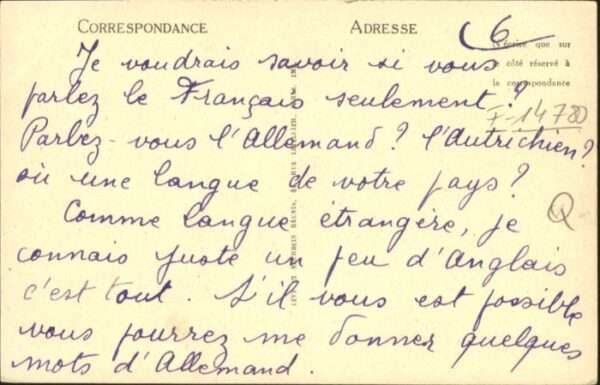 CORRESPONDANCE ADRESSE 6
N'écrire que sur
le côté réservé à
la correspondance
Je voudrais savoir si vous
parlez le Français seulement ?
F-14780
Parlez-vous l'Allemand ? l'Autrichien ?
où une langue de votre pays ?
Comme langue étrangère, je Q
connais juste un peu d'Anglais
c'est tout. S'il vous est possible
vous pourrez me donner quelques
mots d'Allemand.